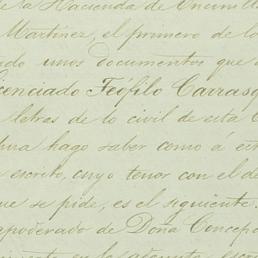 de la Hacienda de
Martínez, el primero de lo
do unos documentos que
cenciado Teófilo Carras
letras de lo civil de esta
hago saber como á
escrito, cuyo tenor con el de
se pide, es el siguiente.
apoderado de Doña Concep
en la adjunta